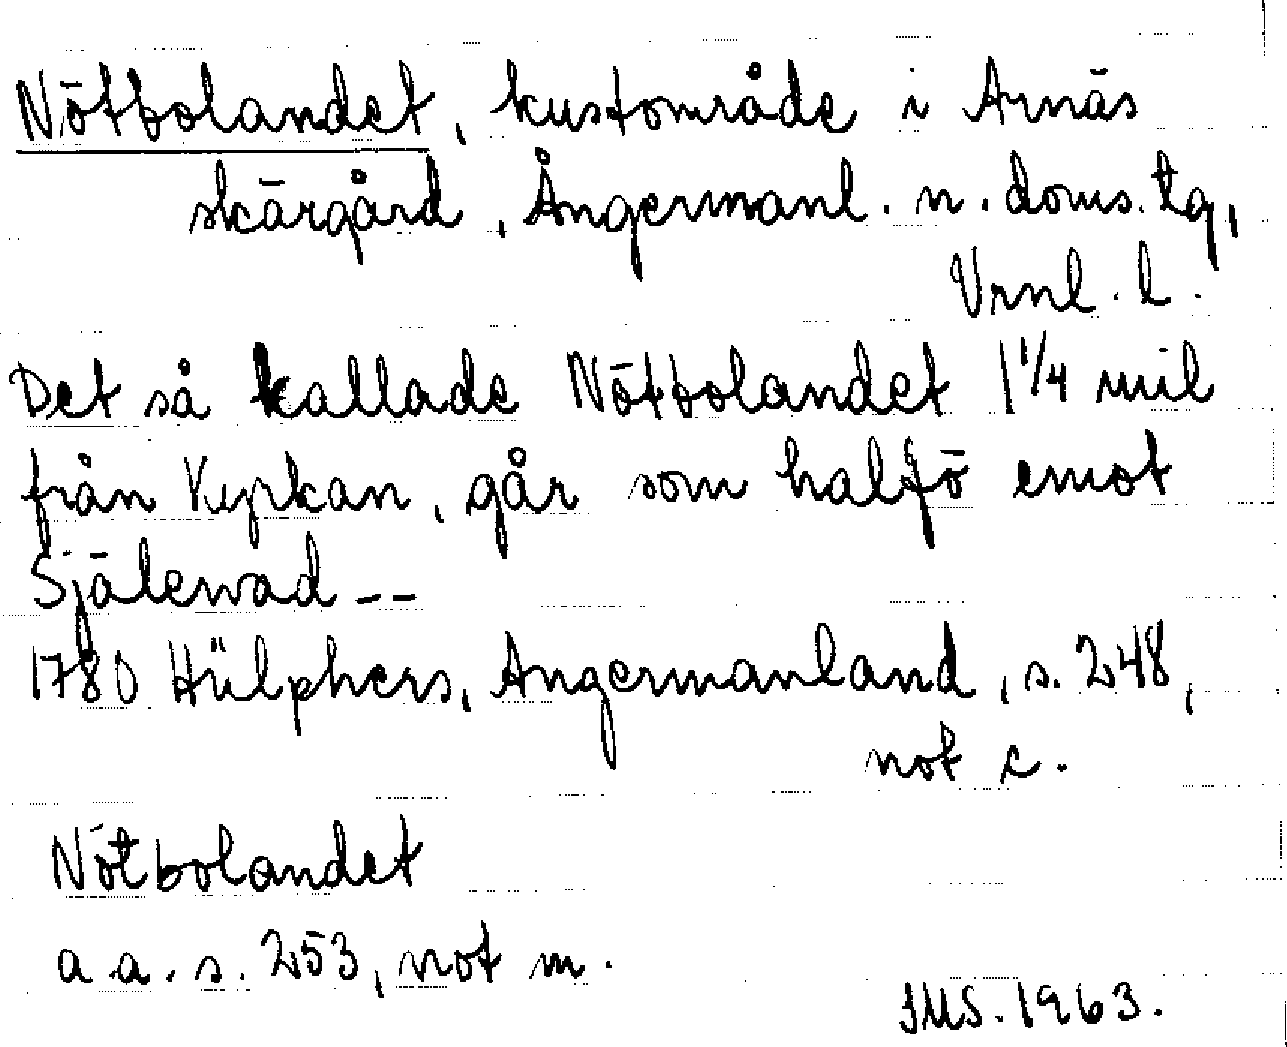 Nötbolandet, kustområde i Arnäs
skärgård, Ångermanl. n. doms. tg,
Vrnl. l.
Det så kallade Nötbolandet 1 1/4 mil
från Kyrkan, går som halfö emot
Själewad --
1780 Hülphers, Angermanland, s. 248,
not c.
Nötbolandet
a a. s. 253, not m.
IMS. 1963.